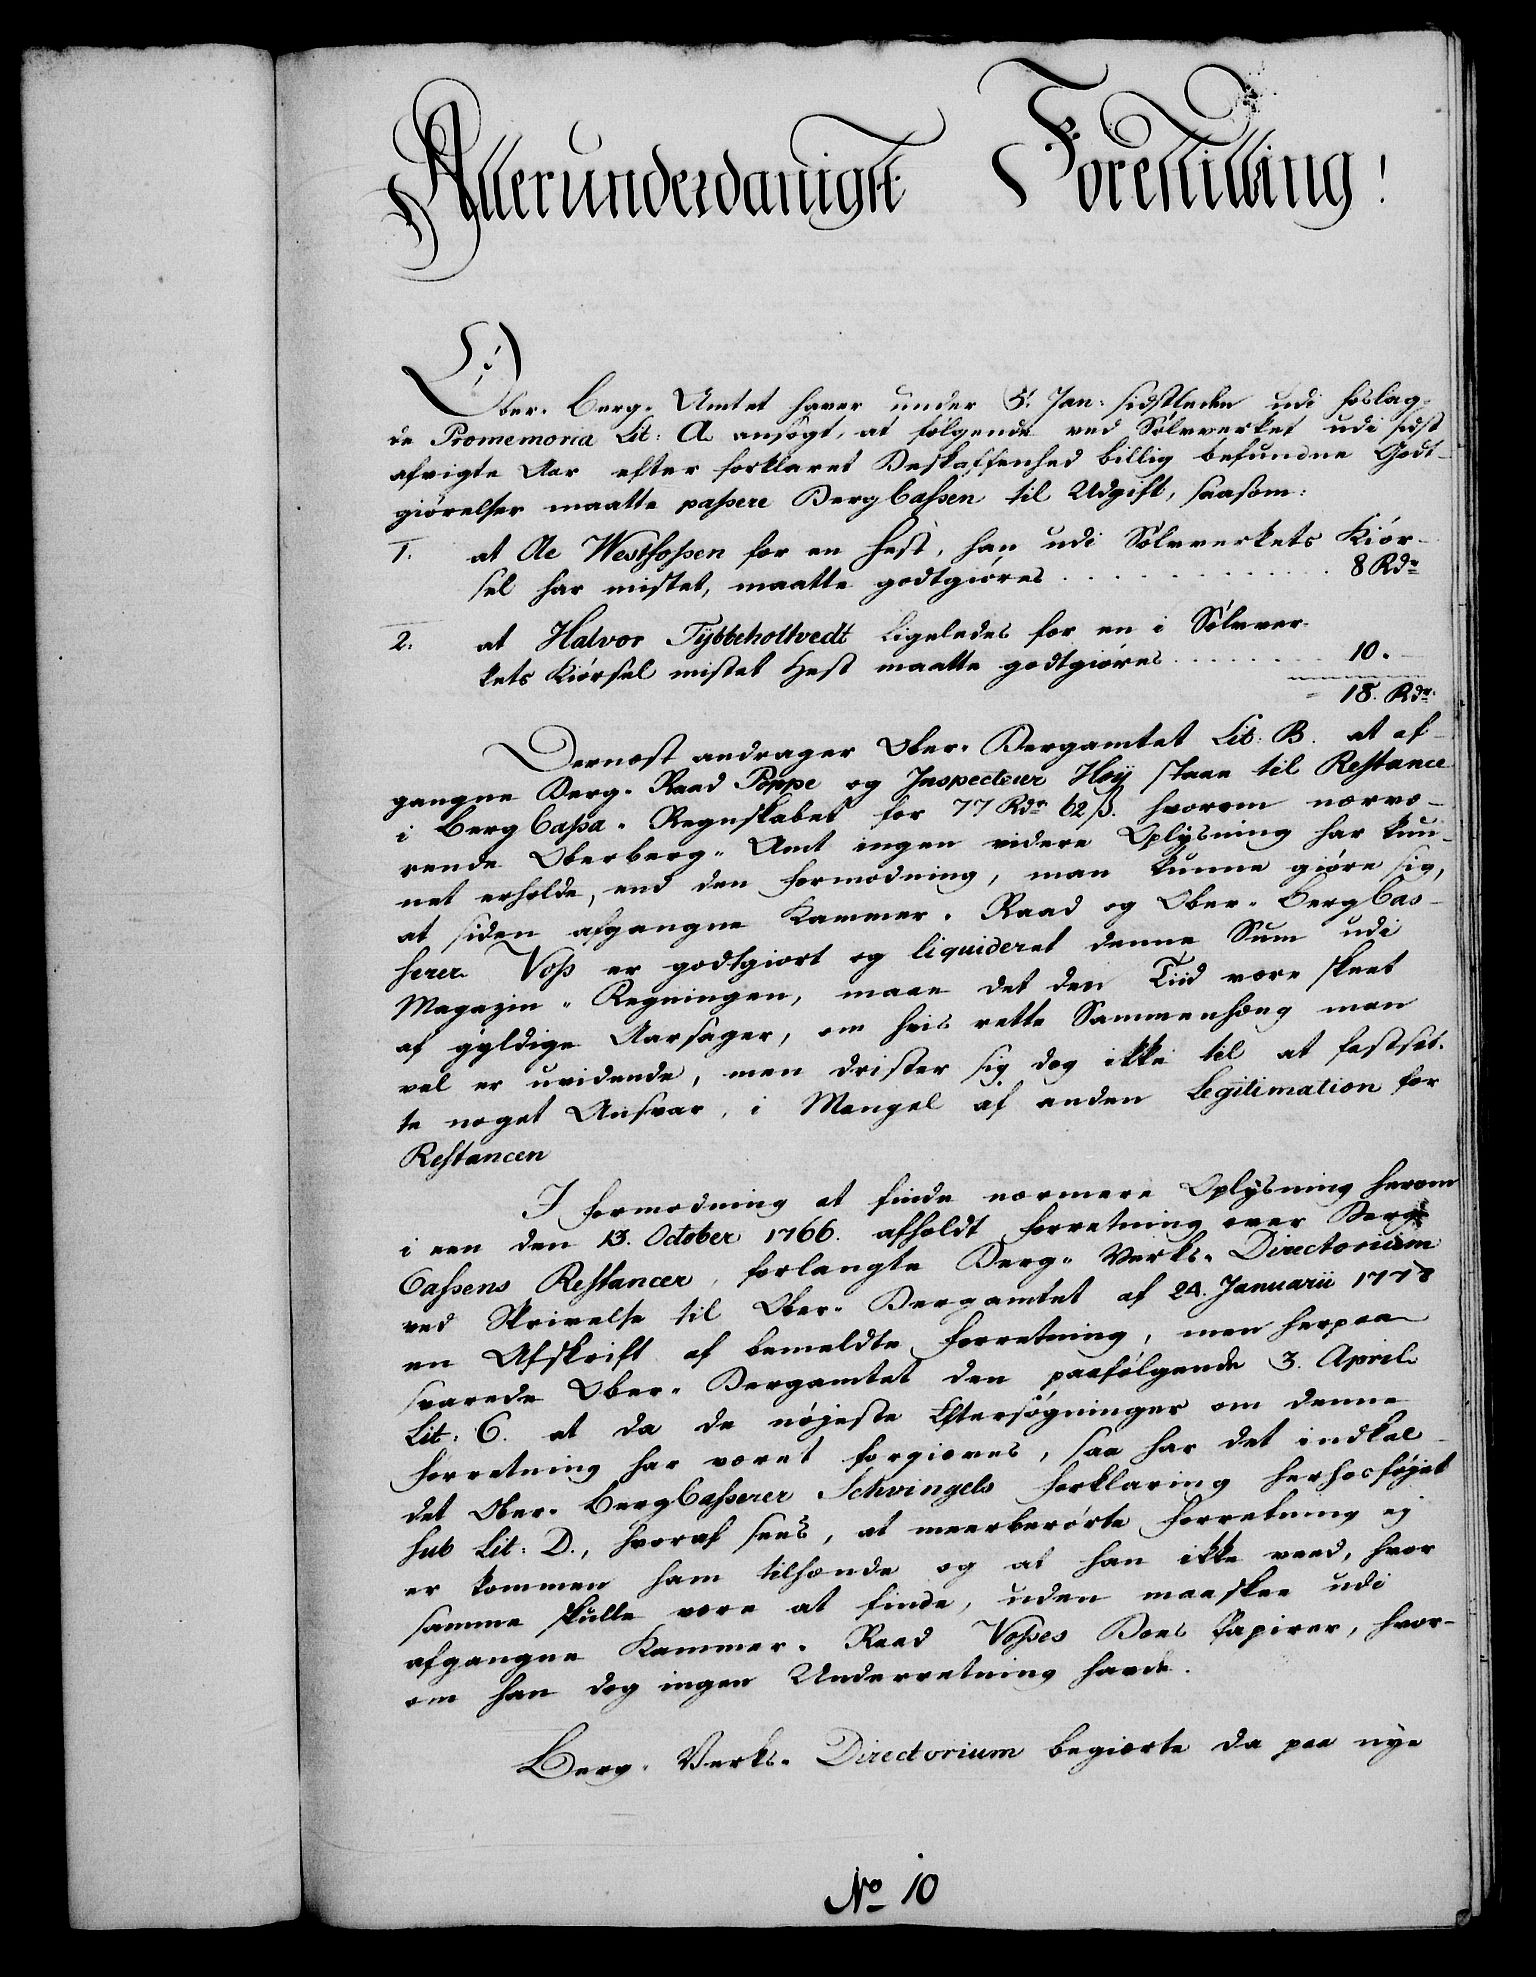 Allerunderdanigst Forestilling!
Ober-Berg-Amtet haver under 5. Jan: sidstleden udi følag-
de Promemoria Lit: A ansøgt, at følgende ved Sølvverket udi sidst
afvigte Aar efter forklaret Beskaffenhed billig befundne Godt-
giørelser maatte passere BergCassen til Udgift, saasom:
1. at Ole Westfossen for en Hest, han udi Sølvverkets Kiør-
sel har mistet, maatte godtgiøres . . . . . . . . . . . . 8 Rdr
2. at Halvor Tybbeholtvedt ligeledes for en i Sølvver-
kets Kiørsel mistet Hest maatte godtgiøres . . . . . . . . 10. —
18. Rdr.
Dernæst andrager Ober-Bergamtet Lit: B. at af-
gangne Berg-Raad Poppe og Inspecteur Høy staae til Restance
i BergCassa-Regnskabet for 77 Rdr 62 ß. hvorom nærvæ-
rende Oberberg-Amt ingen videre Oplysning har kun-
net erholde, end den Formodning, man kunne giøre sig,
at siden afgangne Kammer-Raad og Ober-BergCas-
serer Voss er godtgiort og liquideret denne Sum udi
Magazin-Regningen, maae det den Tiid være skeet
af gyldige Aarsager, om hvis rette Sammenhæng man
vel er uvidende, men drister sig dog ikke til at fastsæt-
te noget Ansvar, i Mangel af anden Legitimation for
Restancen
I Formodning at finde nærmere Oplysning herom
i een den 13. October 1766. afholdt Forretning over Berg
Cassens Restancer, forlangte Berg-Verks-Directorium
ved Skrivelse til Ober-Bergamtet af 24. Januarii 1778
en Afskrift af bemeldte Forretning, men herpaa
svarede Ober-Bergamtet den paafølgende 3. April
Lit: C. at da de nøjeste Eftersøgninger om denne
Forretning har været forgiæves, saa har det indkal-
det Ober-BergCasserer Schvingels Forklaring herhosføjet
sub Lit: D., hvoraf sees, at meerberørte Forretning ej
er kommen ham tilhænde og at han ikke veed, hvor
samme skulle være at finde, uden maaskee udi
afgangne Kammer-Raad Vosses Boes Papirer, hvor-
om han dog ingen Underretning havde.
Berg-Verks-Directorium begiærte da paa nye
No 10